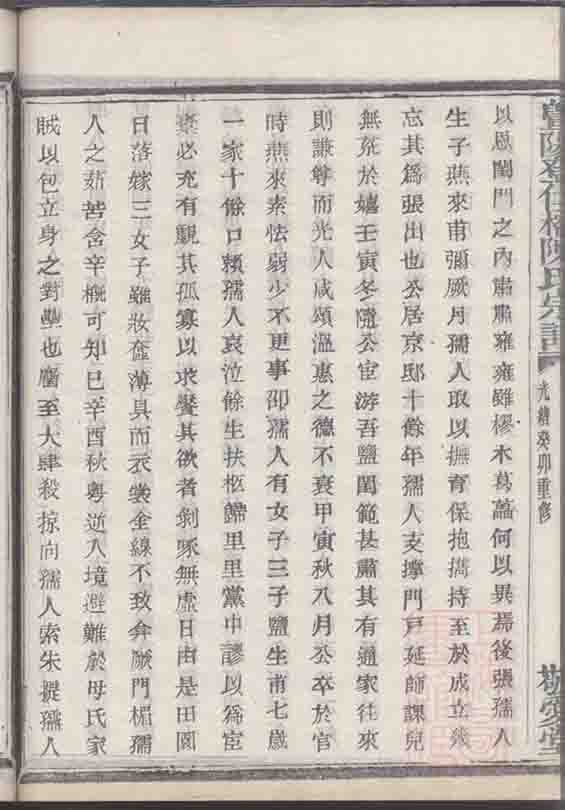 以恩閨門之內肅肅雍雍雖樛木葛藟何以異焉後張孺人
生子燕來甫彌厥月孺人取以撫育保抱攜持至於成立幾
忘其為張出也公居京邸十餘年孺人支撐門戶延師課兒
無荒於嬉壬寅冬隨公宦游吾鹽閨範甚肅其有通家往來
則謙尊而光人咸頌溫惠之德不衰甲寅秋八月公卒於官
時燕來素怯弱少不更事卲孺人有女子三子鹽生甫七歲
一家十餘口賴孺人哀泣餘生扶柩歸里里黨中謬以為宦
橐必充有覬其孤寡以求饜其欲者剝啄無虛日由是田園
日落嫁三女子雖妝奩薄具而衣裳金線不致弇厥門楣孺
人之茹苦含辛概可知已辛酉秋粵逆入境避難於母氏家
賊以包立身之對壘也麕至大肆殺掠向孺人索朱提孺人
登仕橋陳氏宗譜
光緒癸卯重修
敬愛堂